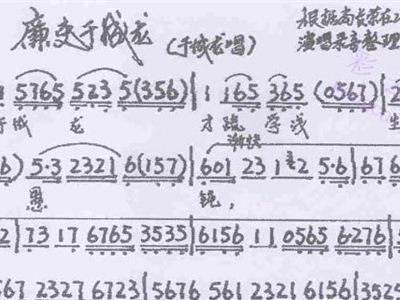 廉吏于成龙 (于成龙唱) 根据尚长荣在
演唱录音整理
5765 523 5(356) | 1 165 365 (0567) | 2
于成 龙 才疏 学浅 生
渐快
) 5·3 2321 6(157) | 601 23 1 2 5·6 | 676
恩 锐,
2 | 73 17 6765 3535 | 6156 11 0565 6276 |
567 2327 6723 | 5676 561 2321 6156 | 3525